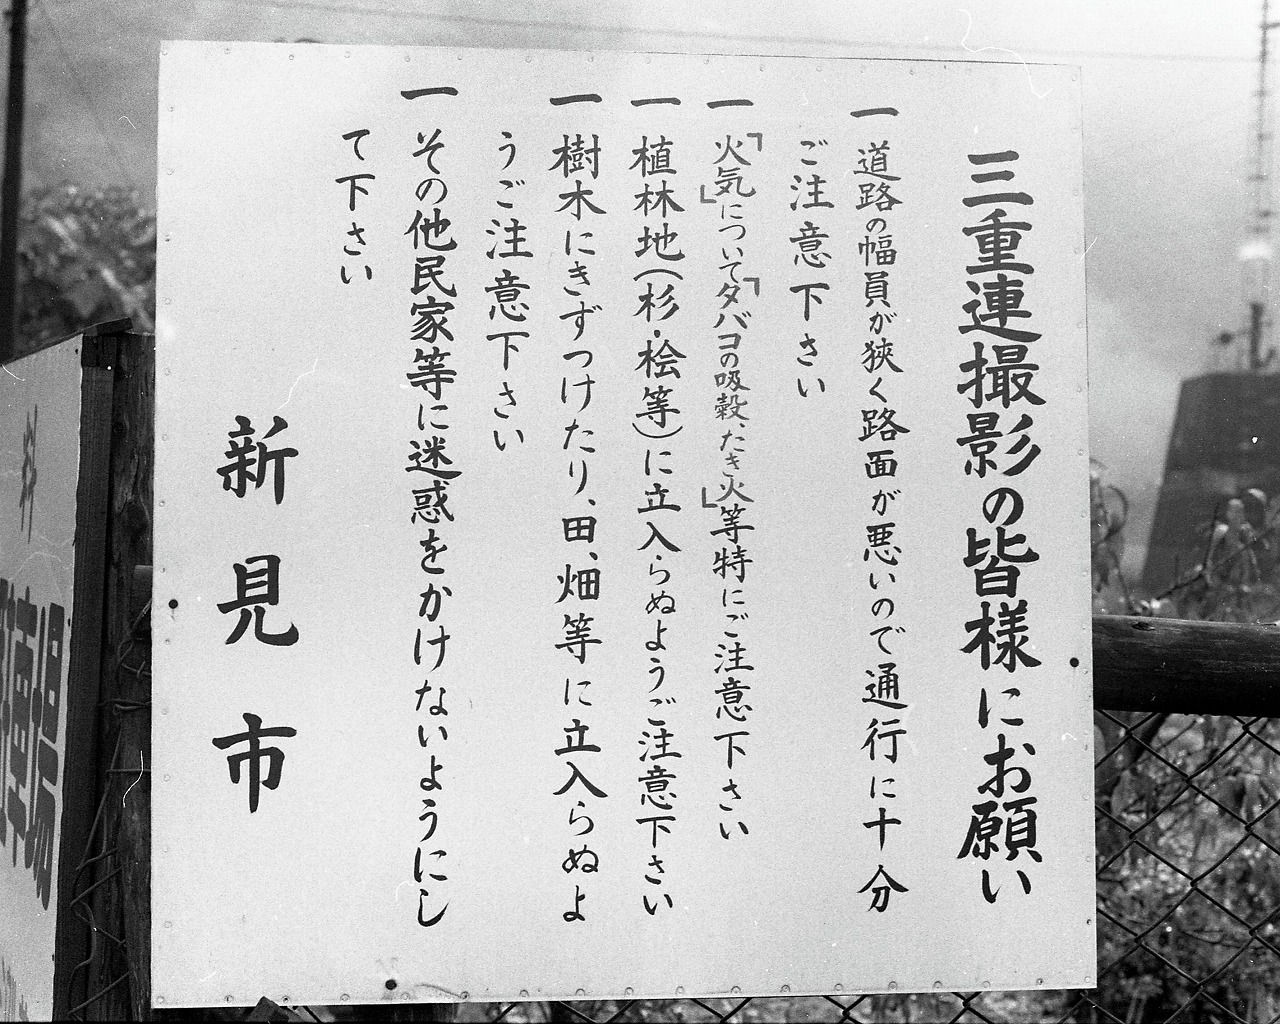 三重連撮影の皆様にお願い
一 道路の幅員が狭く路面が悪いので通行に十分
ご注意下さい
一 「火気」について「タバコの吸殻、たき火」等特にご注意下さい
一 植林地(杉・桧等)に立入らぬようご注意下さい
一 樹木にきずつけたり、田、畑等に立入らぬよ
うご注意下さい
一 その他民家等に迷惑をかけないようにし
て下さい
新見市
料
駐車場